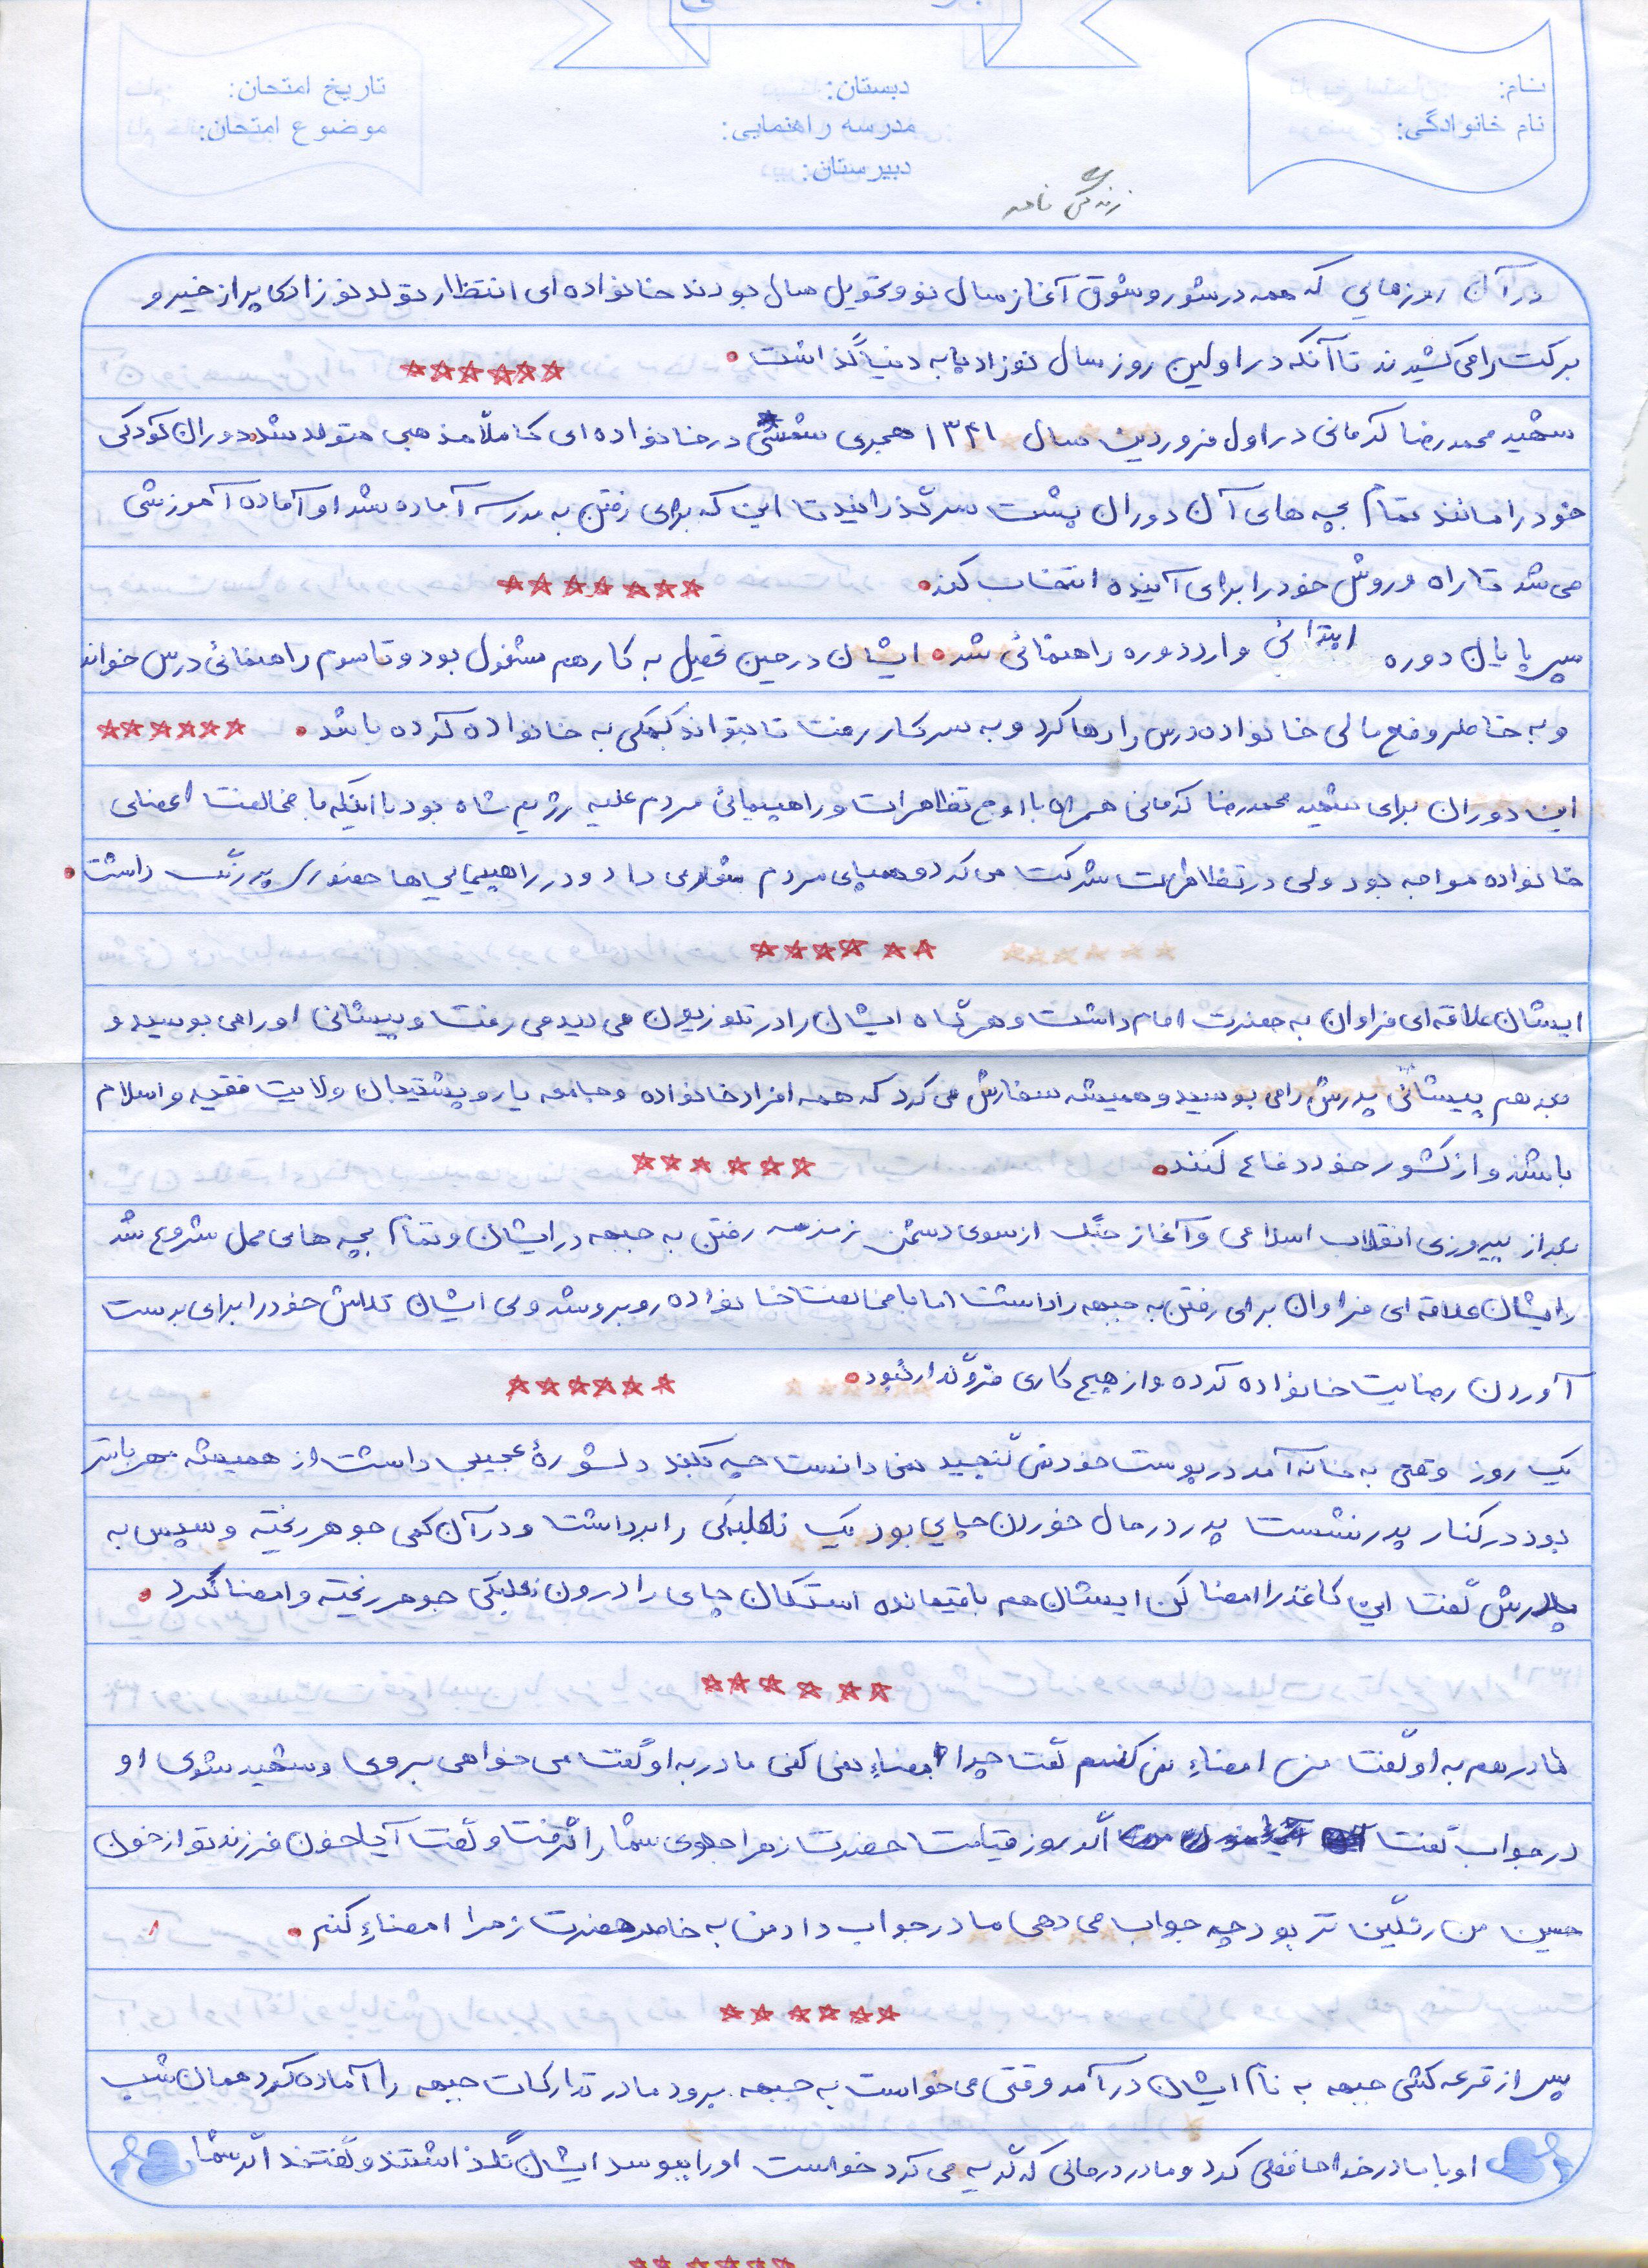 نام:
نام خانوادگی:
دبستان:
مدرسه راهنمایی:
دبیرستان:
تاریخ امتحان:
موضوع امتحان:
زندگی نامه
در آن روزهایی که همه در شور و شوق آغاز سال نو و تحویل سال بودند خانواده ای انتظار تولد نوزادی پر از خیر و
برکت را می کشیدند تا آنکه در اولین روز سال نوزاد پا به دنیا گذاشت.
شهید محمدرضا کرمانی در اول فروردین سال ۱۳۴۱ هجری شمسی در خانواده ای کاملاً مذهبی متولد شد. دوران کودکی
خود را مانند تمام بچه های آن دوران پشت سر گذرانید تا این که برای رفتن به مدرسه آماده شد او آماده آموزشی
می شد تا راه و روش خود را برای آینده انتخاب کند.
پس پایان دوره ابتدائی وارد دوره راهنمائی شد. ایشان در حین تحصیل به کار هم مشغول بود و تا سوم راهنمائی درس خواند
و به خاطر وضع مالی خانواده درس را رها کرد و به سر کار رفت تا بتواند کمکی به خانواده کرده باشد.
این دوران برای شهید محمدرضا کرمانی همراه با اوج تظاهرات و راهپیمائی مردم علیه رژیم شاه بود با اینکه با مخالفت اعضای
خانواده مواجه بود ولی در تظاهرات شرکت می کرد و همپای مردم شعار می داد و در راهپیمایی ها حضوری پررنگ داشت.
ایشان علاقه ای فراوان به حضرت امام داشت و هر گاه ایشان را در تلوزیون می دید می رفت و پیشانی او را می بوسید و
بعد هم پیشانی پدرش را می بوسید و همیشه سفارش می کرد که همه افراد خانواده و جامعه یار و پشتیبان ولایت فقیه و اسلام
باشند و از کشور خود دفاع کنند.
بعد از پیروزی انقلاب اسلامی و آغاز جنگ از سوی دشمن زمزمه رفتن به جبهه در ایشان و تمام بچه های محل شروع شد
ایشان علاقه ای فراوان برای رفتن به جبهه را داشت اما با مخالفت خانواده روبرو شد ولی ایشان تلاش خود را برای بدست
آوردن رضایت خانواده کرده و از هیچ کاری فروگذار نبود.
یک روز وقتی به خانه آمد در پوست خود نمی گنجید نمی دانست چه بکند دلشورهٔ عجیبی داشت از همیشه مهربانتر
بود در کنار پدر نشست پدر در حال خوردن چایی بود یک نعلبکی را برداشت و در آن کمی جوهر ریخته و سپس به
پدرش گفت این کاغذ را امضا کن ایشان هم باقیمانده استکان چای را درون نعلبکی جوهر ریخته و امضا کرد.
مادر هم به او گفت من امضاء نمی کنم گفت چرا امضاء نمی کنی مادر به او گفت می خواهی بروی و شهید شوی او
در جواب گفت اگر روز قیامت حضرت زهرا جلوی شما را گرفت و گفت آیا خون فرزند تو از خون
حسین من رنگین تر بود چه جواب می دهی مادر جواب داد من به خاطر حضرت زهرا امضاء کنم.
پس از قرعه کشی جبهه به نام ایشان در آمد وقتی می خواست به جبهه برود مادر تدارکات جبهه را آماده کرد همان شب
او با مادر خداحافظی کرد و مادر درحالی که گریه می کرد خواست او را ببوسد ایشان نگذاشتند و گفتند اگر شما